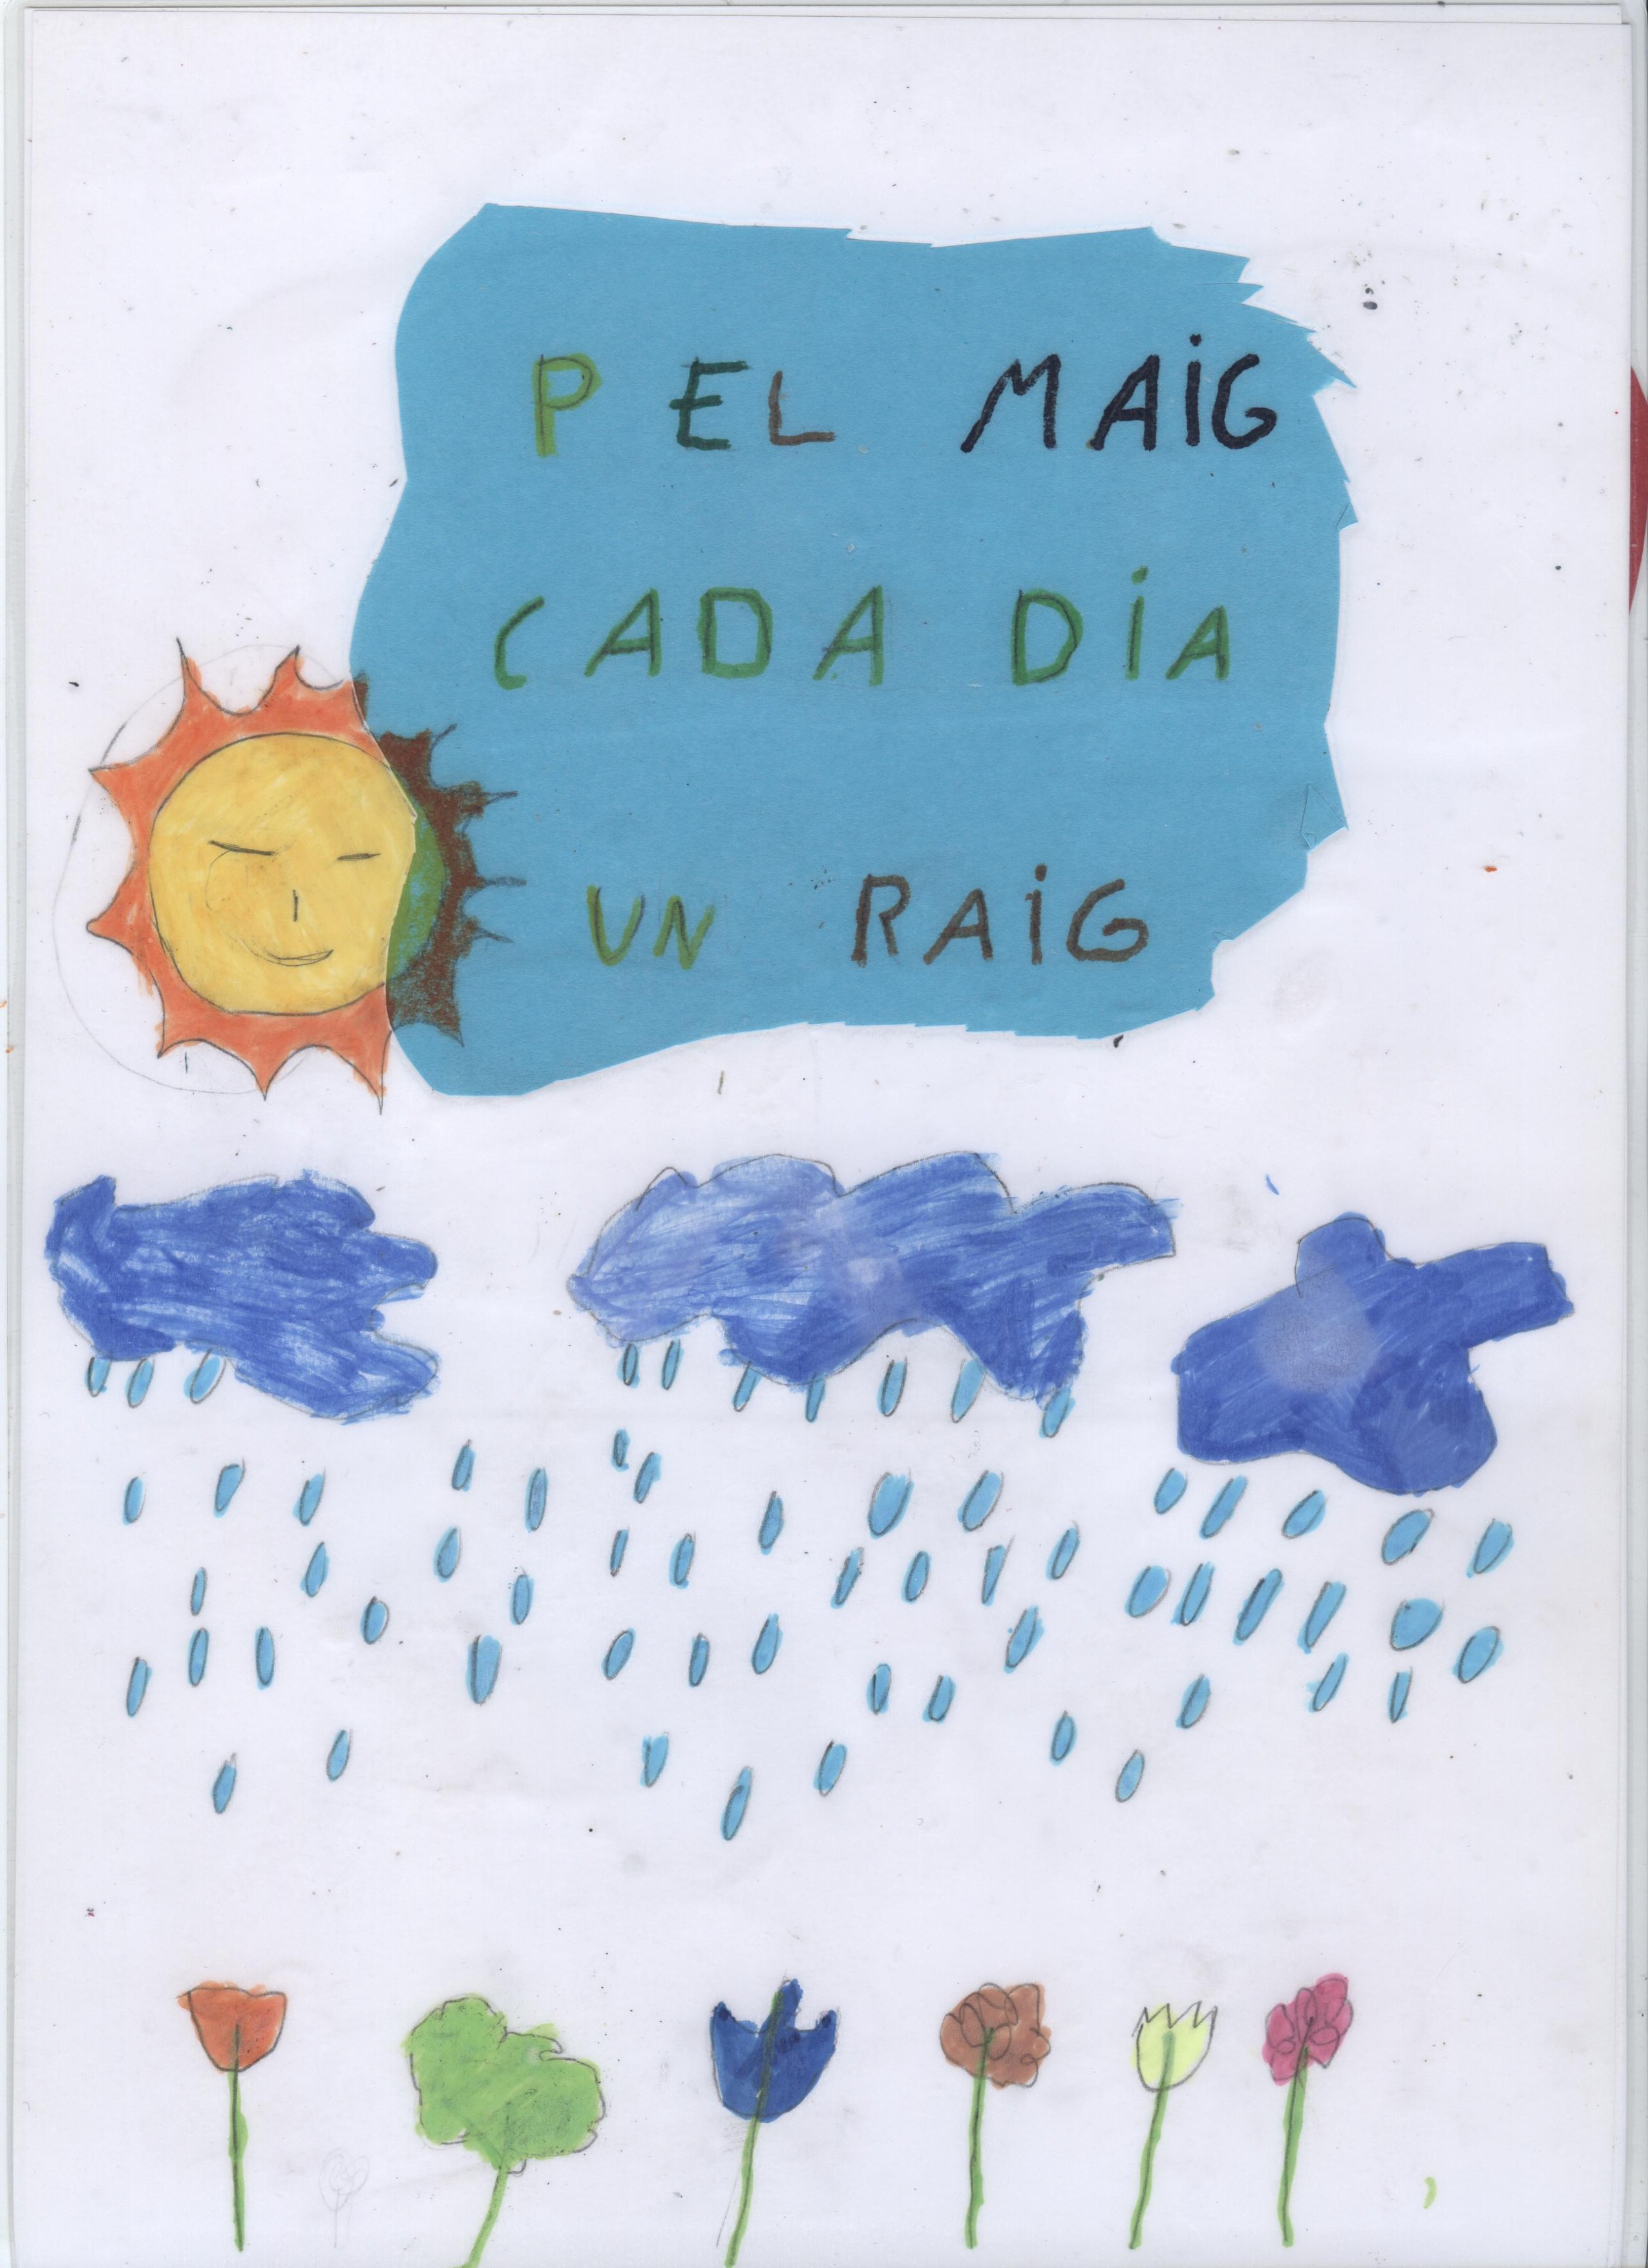 PEL MAIG
CADA DIA
UN RAIG